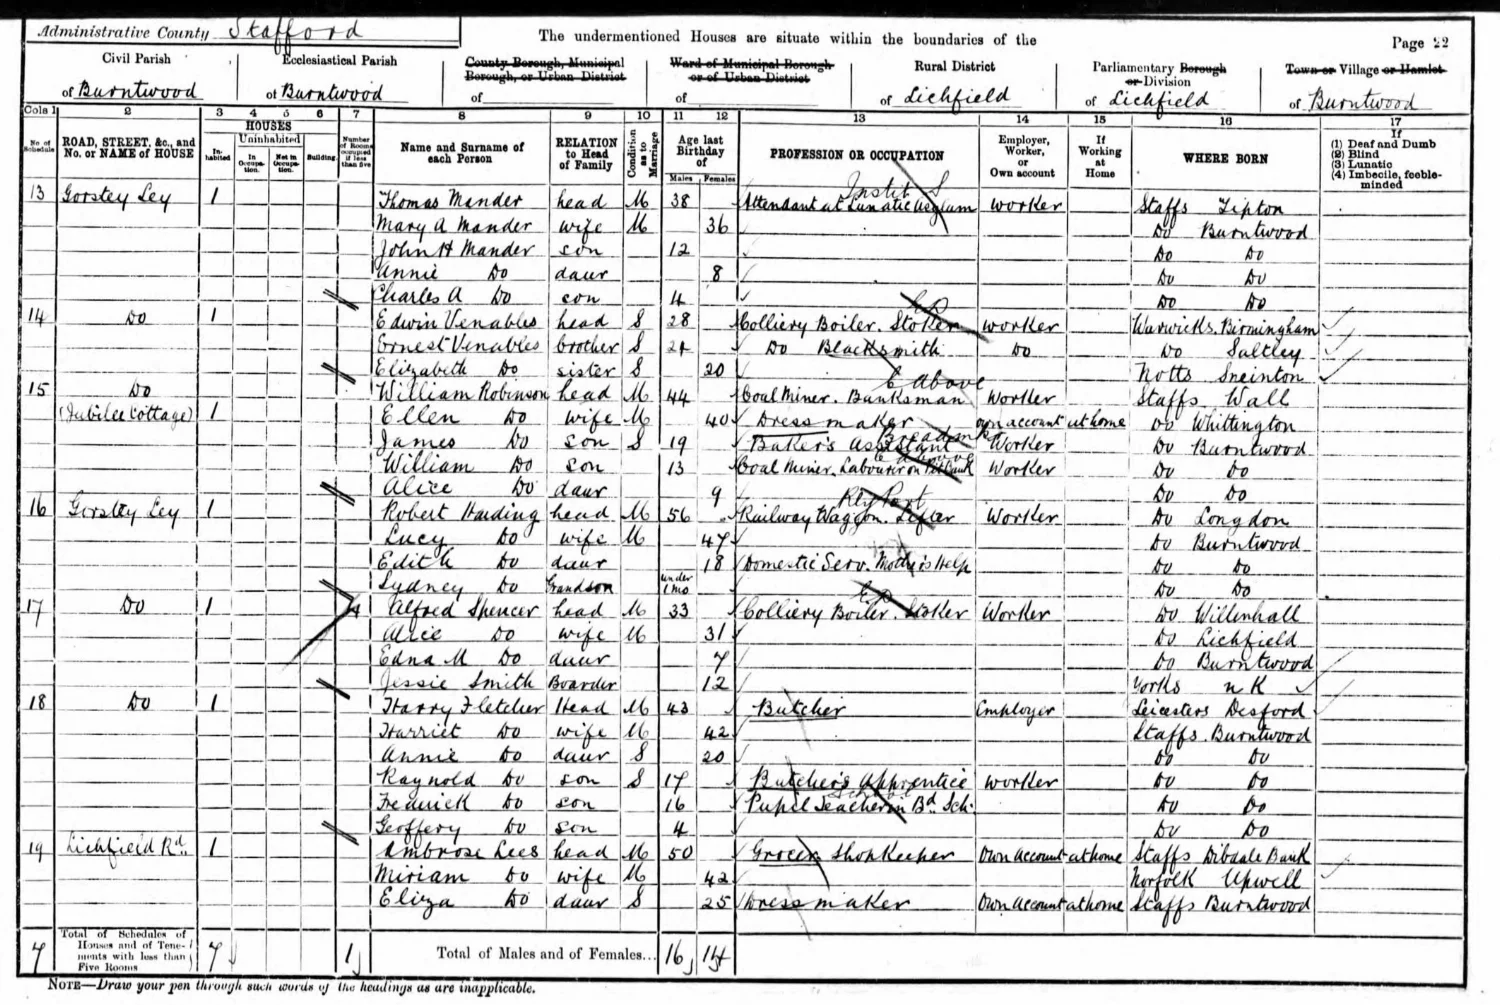 Administrative County Stafford
The undermentioned Houses are situate within the boundaries of the
Page 22
Civil Parish of Burntwood
Ecclesiastical Parish of Burntwood
County Borough, Municipal Borough, or Urban District of
Ward of Municipal Borough or of Urban District of
Rural District of Lichfield
Parliamentary Borough or Division of Lichfield
Town or Village or Hamlet of Burntwood
Cols 1 2 3 4 5 6 7 8 9 10 11 12 13 14 15 16 17
No. of Schedule
ROAD, STREET, &c., and No. or NAME of HOUSE
HOUSES
Inhabited
Uninhabited
In Occupation.
Not in Occupation.
Building.
Number of Rooms occupied if less than five
Name and Surname of each Person
RELATION to Head of Family
Condition as to Marriage
Age last Birthday of
Males Females
PROFESSION OR OCCUPATION
Employer, Worker, or Own account
If Working at Home
WHERE BORN
If (1) Deaf and Dumb (2) Blind (3) Lunatic (4) Imbecile, feeble-minded
13 Gorstey Ley 1 Thomas Mander head M 38 Attendant at Lunatic Asylum worker Staffs Tipton
Mary A Mander wife M 36 Do Burntwood
John H Mander son 12 Do Do
Annie Do daur 8 Do Do
Charles A Do son 4 Do Do
14 Do 1 Edwin Venables head S 28 Colliery Boiler. Stoker worker Warwicks. Birmingham
Ernest Venables brother S 21 Do Blacksmith Do Do Saltley
Elizabeth Do sister S 20 Notts Sneinton
15 Do William Robinson head M 44 Coal Miner. Banksman Worker Staffs Wall
(Jubilee Cottage) 1 Ellen Do wife M 40 Dressmaker own account at home Do Whittington
James Do son S 19 Baker's assistant Worker Do Burntwood
William Do son 13 Coal Miner. Labourer on Pit Bank Worker Do Do
Alice Do daur 9 Do Do
16 Gorstey Ley 1 Robert Harding head M 56 Railway Waggon. Lifter Worker Do Longdon
Lucy Do wife M 47 Do Burntwood
Edith Do daur 18 Domestic Serv. Mother's Help Do Do
Sydney Do Grandson under 1 mo Do Do
17 Do 1 4 Alfred Spencer head M 33 Colliery Boiler. Stoker Worker Do Willenhall
Alice Do wife M 31 Do Lichfield
Edna M Do daur 7 Do Burntwood
Jessie Smith Boarder 12 Yorks n K
18 Do 1 Harry Fletcher Head M 43 Butcher Employer Leicesters Desford
Harriet Do wife M 42 Staffs. Burntwood
Annie Do daur S 20 Do Do
Raynold Do son S 17 Butcher's apprentice worker Do Do
Frederick Do son 16 Pupil Teacher in Bd. Sch. Do Do
Geoffery Do son 4 Do Do
19 Lichfield Rd. 1 Ambrose Lees head M 50 Grocer Shopkeeper Own account at home Staffs Dibdale Bank
Miriam Do wife M 42 Norfolk Upwell
Eliza Do daur S 25 Dressmaker Own account at home Staffs Burntwood
7 Total of Schedules of Houses and of Tenements with less than Five Rooms 7 1 Total of Males and of Females... 16 14
NOTE—Draw your pen through such words of the headings as are inapplicable.